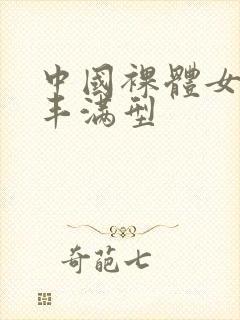 中國裸體女
丰满型
奇葩七